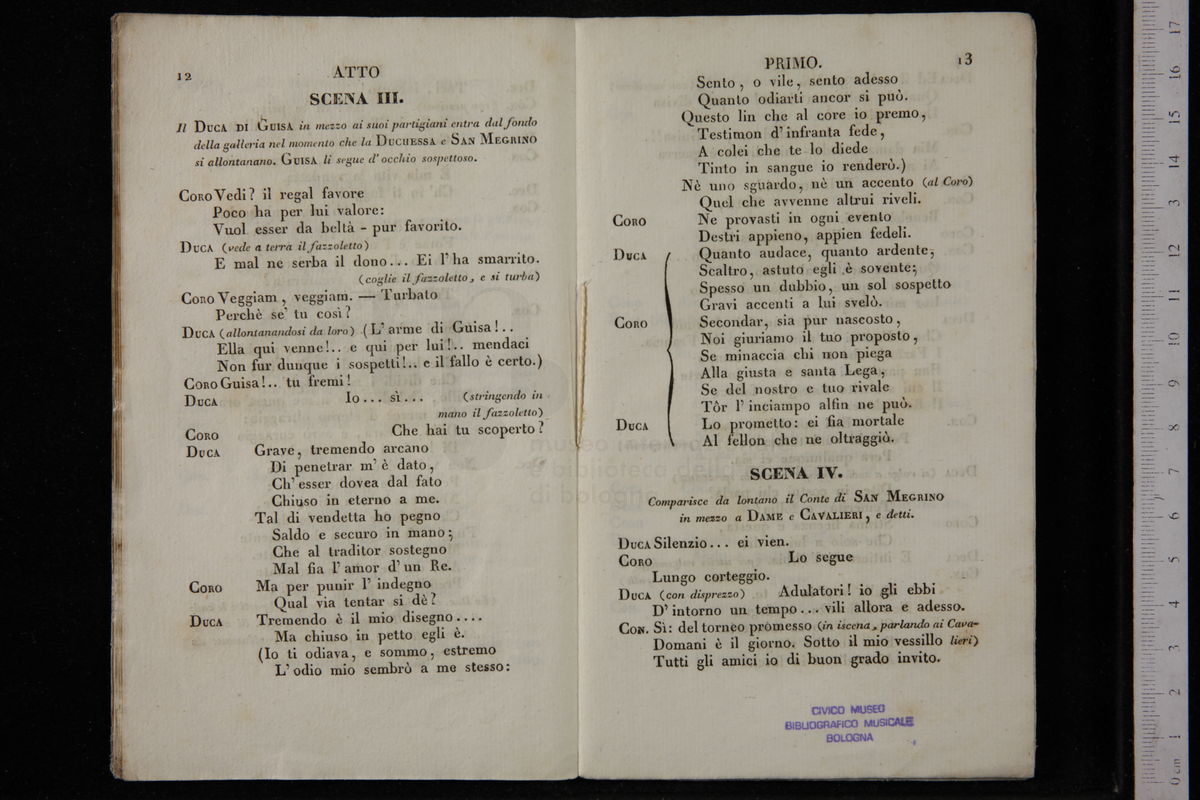 12
ATTO
SCENA III.
Il DUCA DI GUISA in mezzo ai suoi partigiani entra dal fondo
della galleria nel momento che la DUCHESSA e SAN MEGRINO
si allontanano. GUISA li segue d' occhio sospettoso.
CORO Vedi? il regal favore
Poco ha per lui valore:
Vuol esser da beltà - pur favorito.
DUCA (vede a terra il fazzoletto)
E mal ne serba il dono... Ei l' ha smarrito.
(coglie il fazzoletto, e si turba)
CORO Veggiam, veggiam. — Turbato
Perchè se' tu così?
DUCA (allontanandosi da loro) (L' arme di Guisa!..
Ella qui venne!.. e qui per lui!.. mendaci
Non fur dunque i sospetti!.. e il fallo è certo.)
CORO Guisa!.. tu fremi!
DUCA Io... sì... (stringendo in
mano il fazzoletto)
CORO Che hai tu scoperto?
DUCA Grave, tremendo arcano
Di penetrar m' è dato,
Ch' esser dovea dal fato
Chiuso in eterno a me.
Tal di vendetta ho pegno
Saldo e securo in mano;
Che al traditor sostegno
Mal fia l' amor d' un Re.
CORO Ma per punir l' indegno
Qual via tentar si dè?
DUCA Tremendo è il mio disegno....
Ma chiuso in petto egli è.
(Io ti odiava, e sommo, estremo
L' odio mio sembrò a me stesso:
PRIMO.
13
Sento, o vile, sento adesso
Quanto odiarti ancor si può.
Questo lin che al core io premo,
Testimon d' infranta fede,
A colei che te lo diede
Tinto in sangue io renderò.)
Nè uno sguardo, nè un accento (al Coro)
Quel che avvenne altrui riveli.
CORO Ne provasti in ogni evento
Destri appieno, appien fedeli.
DUCA Quanto audace, quanto ardente,
Scaltro, astuto egli è sovente;
Spesso un dubbio, un sol sospetto
Gravi accenti a lui svelò.
CORO Secondar, sia pur nascosto,
Noi giuriamo il tuo proposto,
Se minaccia chi non piega
Alla giusta e santa Lega,
Se del nostro e tuo rivale
Tôr l' inciampo alfin ne può.
DUCA Lo prometto: ei fia mortale
Al fellon che ne oltraggiò.
SCENA IV.
Comparisce da lontano il Conte di SAN MEGRINO
in mezzo a DAME e CAVALIERI, e detti.
DUCA Silenzio... ei vien.
CORO Lo segue
Lungo corteggio.
DUCA (con disprezzo) Adulatori! io gli ebbi
D' intorno un tempo... vili allora e adesso.
CON. Sì: del torneo promesso (in iscena, parlando ai Cava-
Domani è il giorno. Sotto il mio vessillo lieri)
Tutti gli amici io di buon grado invito.
CIVICO MUSEO
BIBLIOGRAFICO MUSICALE
BOLOGNA